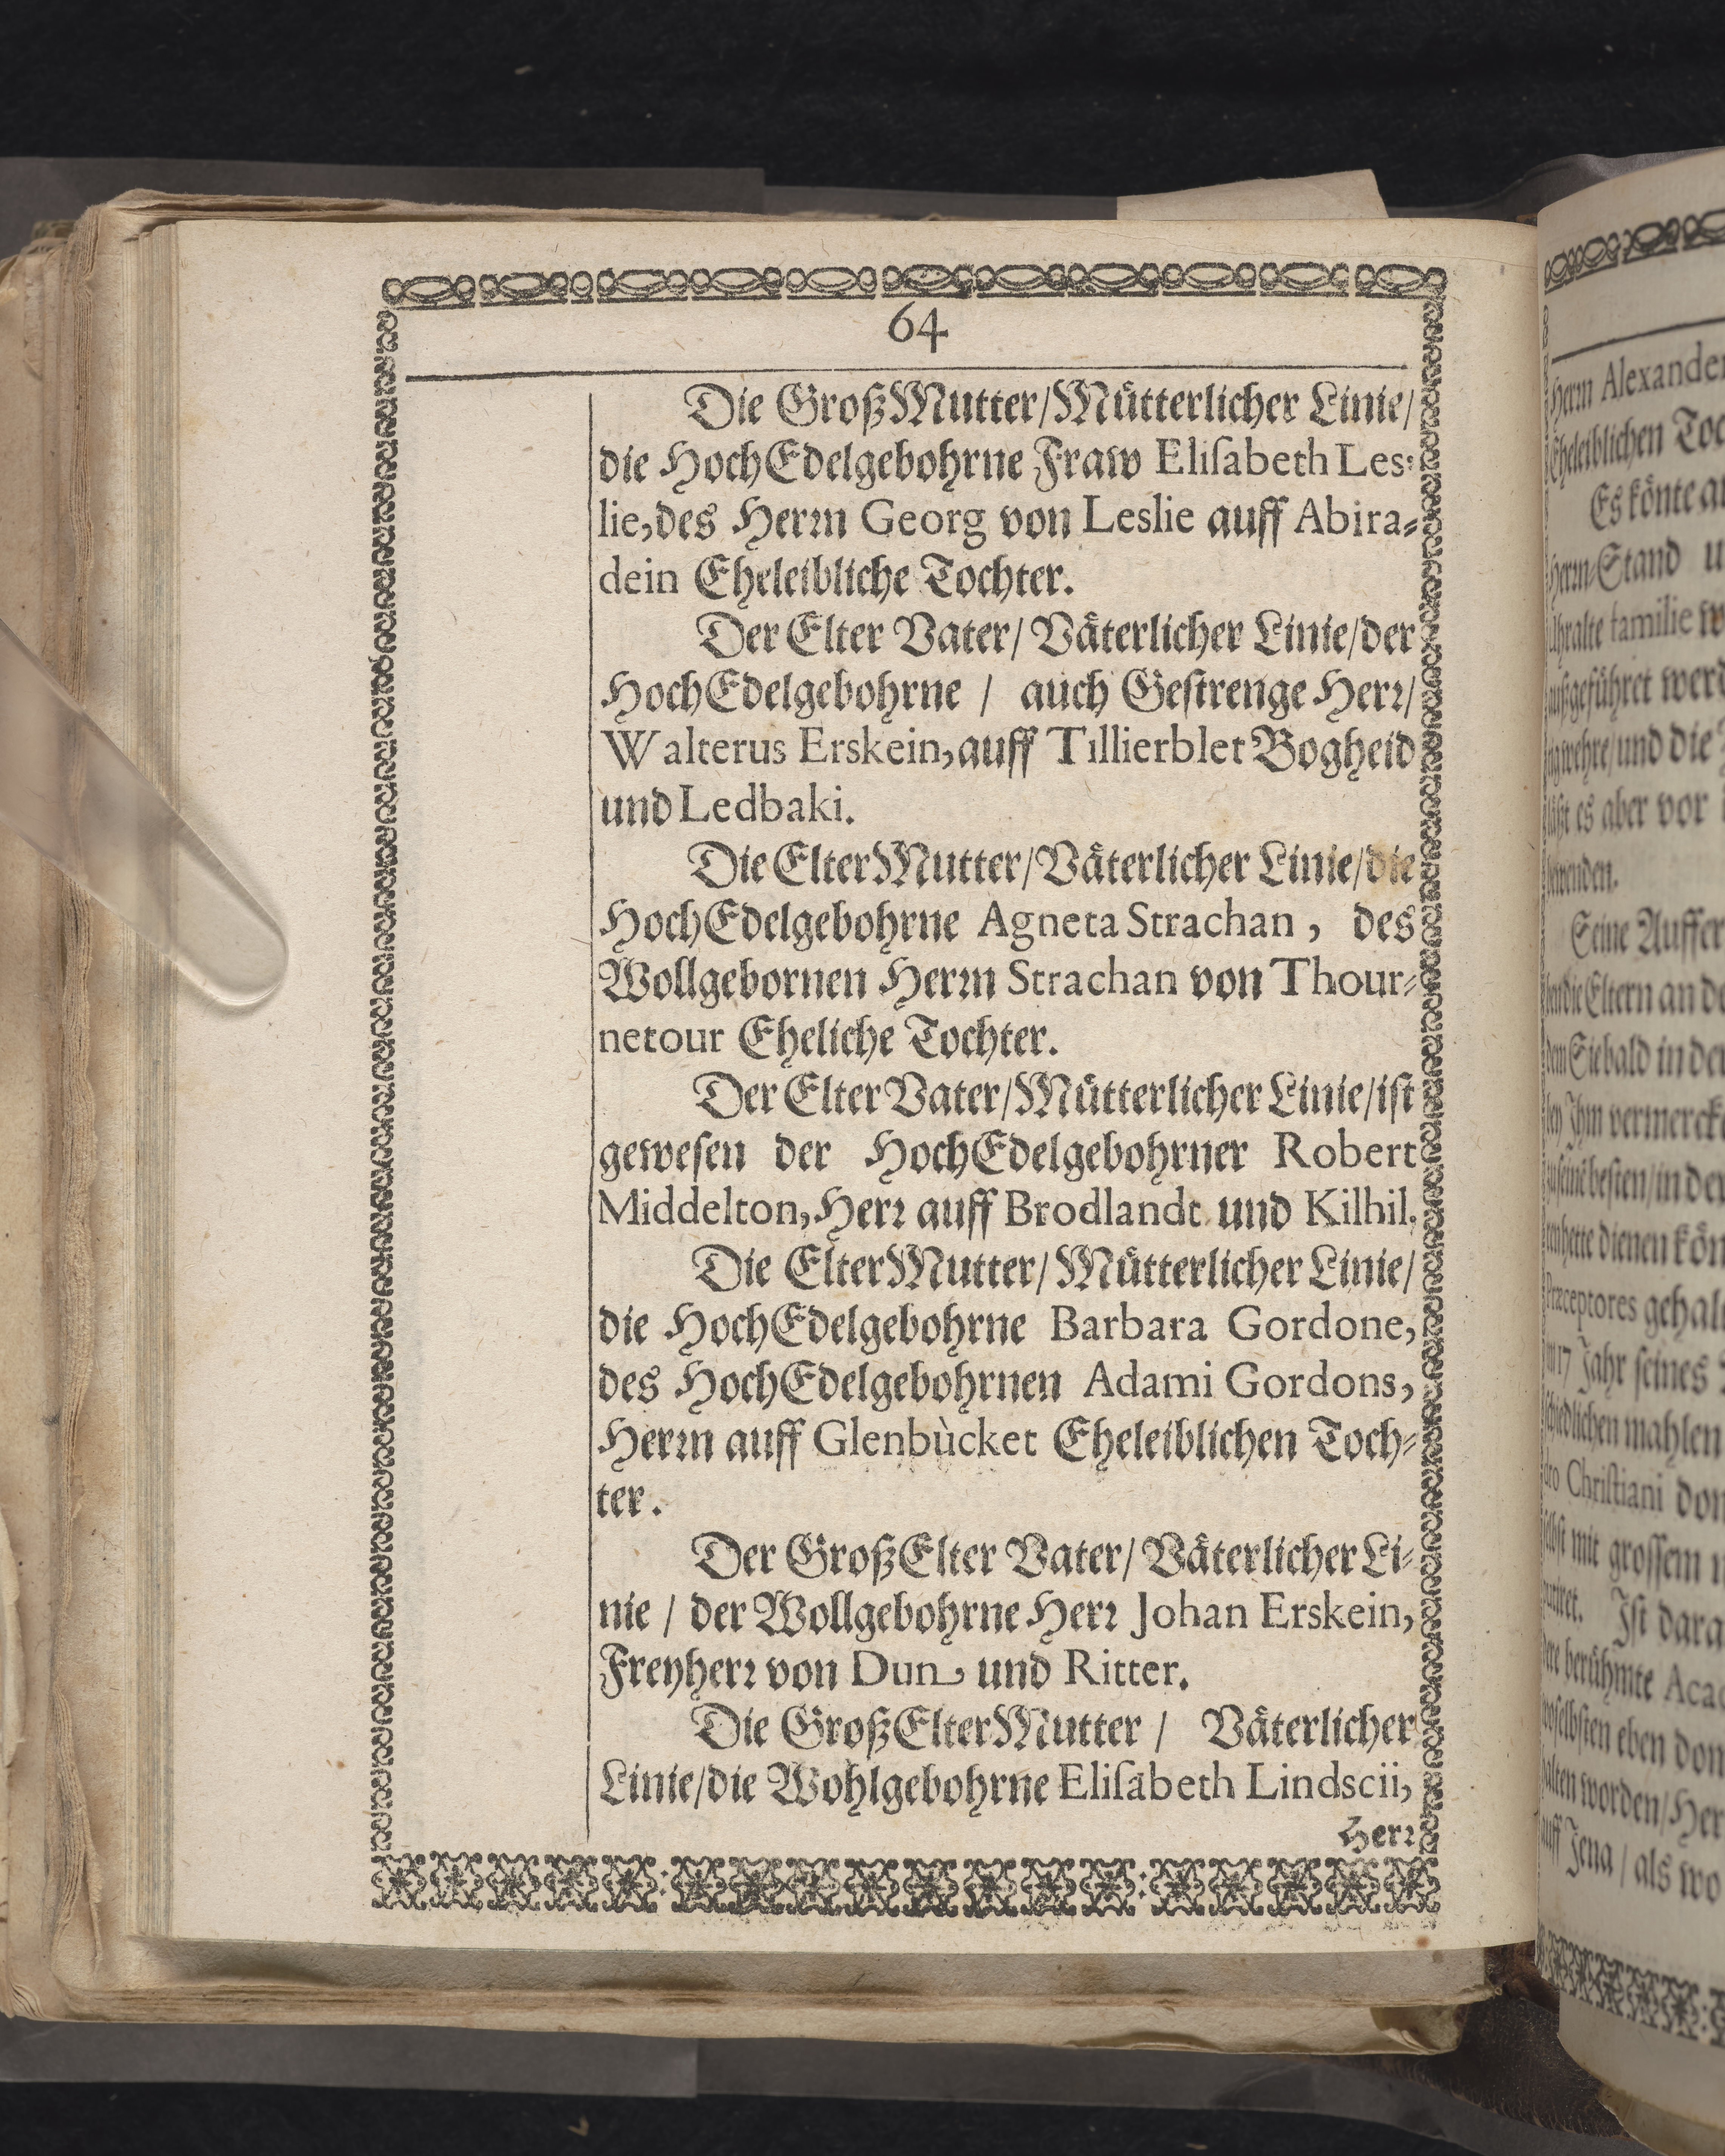 64
Die GroßMutter/Mütterlicher Linie/
die HochEdelgebohrne Fraw Eliſabeth Les-
lie, des Herrn Georg von Leslie auff Abira-
dein Eheleibliche Tochter.
Der Elter Vater/ Väterlicher Linie/der
HochEdelgebohrne / auch Geſtrenge Herr/
Walterus Erskein, auff Tillierblet Bogheid
und Ledbaki.
Die ElterMutter/Väterlicher Linie/die
HochEdelgebohrne Agneta Strachan, des
Wollgebornen Herrn Strachan von Thour-
netour Eheliche Tochter.
Der Elter Vater/Mütterlicher Linie/iſt
geweſen der HochEdelgebohrner Robert
Middelton, Herr auff Brodlandt und Kilhil.
Die ElterMutter/ Mütterlicher Linie/
die HochEdelgebohrne Barbara Gordone,
des HochEdelgebohrnen Adami Gordons,
Herrn auff Glenbùcket Eheleiblichen Toch-
ter.
Der GroßElter Vater/ Väterlicher Li-
nie / der Wollgebohrne Herr Johan Erskein,
Freyherr von Dun, und Ritter.
Die GroßElterMutter / Väterlicher
Linie/die Wohlgebohrne Eliſabeth Lindscii,
Herr
Herrn Alexander
Eheleiblichen
Es könte
Herrn-Stand
familie
außgeführet
und die
es aber vor
Seine
die Eltern an
Siebald in
Ihm
beſten/in
dienen
Præceptores
17 Jahr ſeines
mahlen
Chriſtiani
mit groſſem
Iſt
berühmte
eben
worden/
auff Jena / als